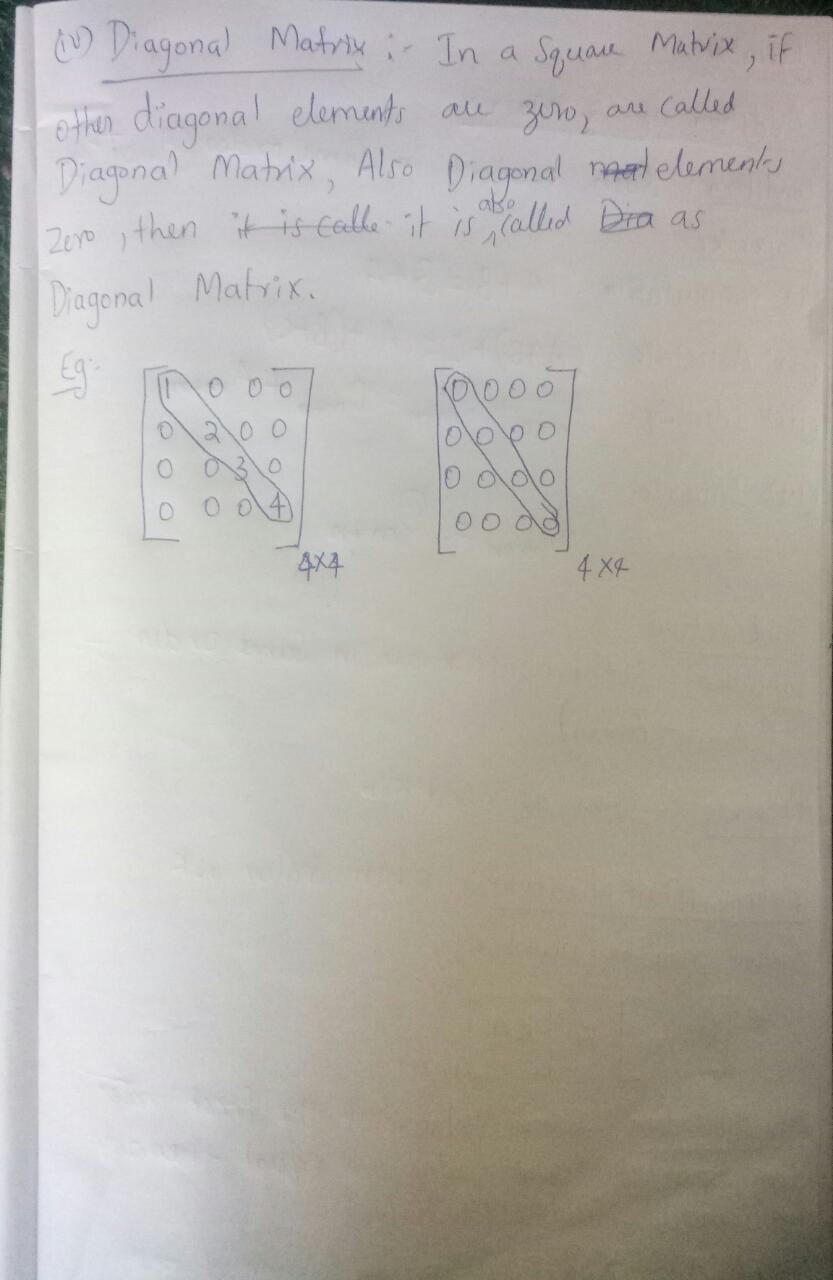 (iv) Diagonal Matrix :- In a Square Matrix, if
other diagonal elements are zero, are called
Diagonal Matrix, Also Diagonal mat elements
Zero, then it is calle it is also called Dia as
Diagonal Matrix.
Eg:-
1 0 0 0
0 2 0 0
0 0 3 0
0 0 0 4
4×4
0 0 0 0
0 0 0 0
0 0 0 0
0 0 0 0
4×4